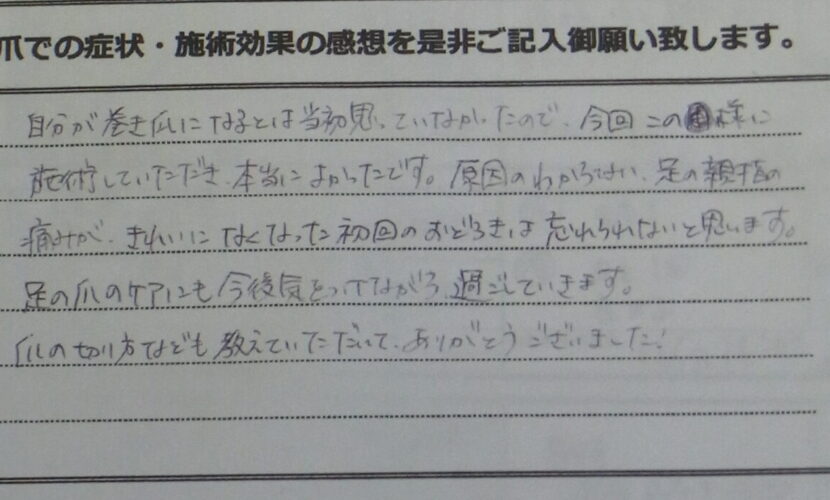 爪での症状・施術効果の感想を是非ご記入御願い致します。
自分が巻き爪になるとは当初思っていなかったので、今回この様に
施術していただき、本当によかったです。原因のわからない、足の親指の
痛みが、きれいになくなった初回のおどろきは忘れられないと思います。
足の爪のケアにも今後気をつけてながら、過ごしていきます。
爪の切り方なども教えていただいて、ありがとうございました!